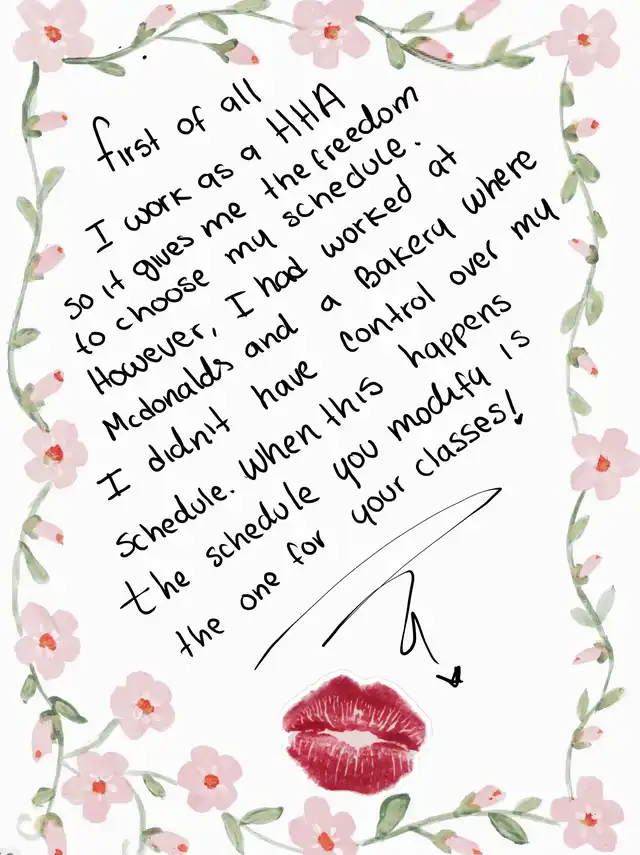 first of all
I work as a HHA
so it gives me the freedom
to choose my schedule.
However, I had worked at
Mcdonalds and a Bakery where
I didn't have control over my
schedule. When this happens
the schedule you modify is
the one for your classes!